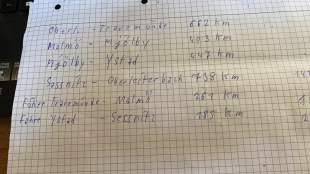 Oberl. - Travemünde 662 km
Malmö - Mjölby 403 km
Mjölby - Ystad 447 km
Sassnitz - Oberleiterbach 738 km
Fähre Travemünde - Malmö 261 km
Fähre Ystad Sassnitz 185 km